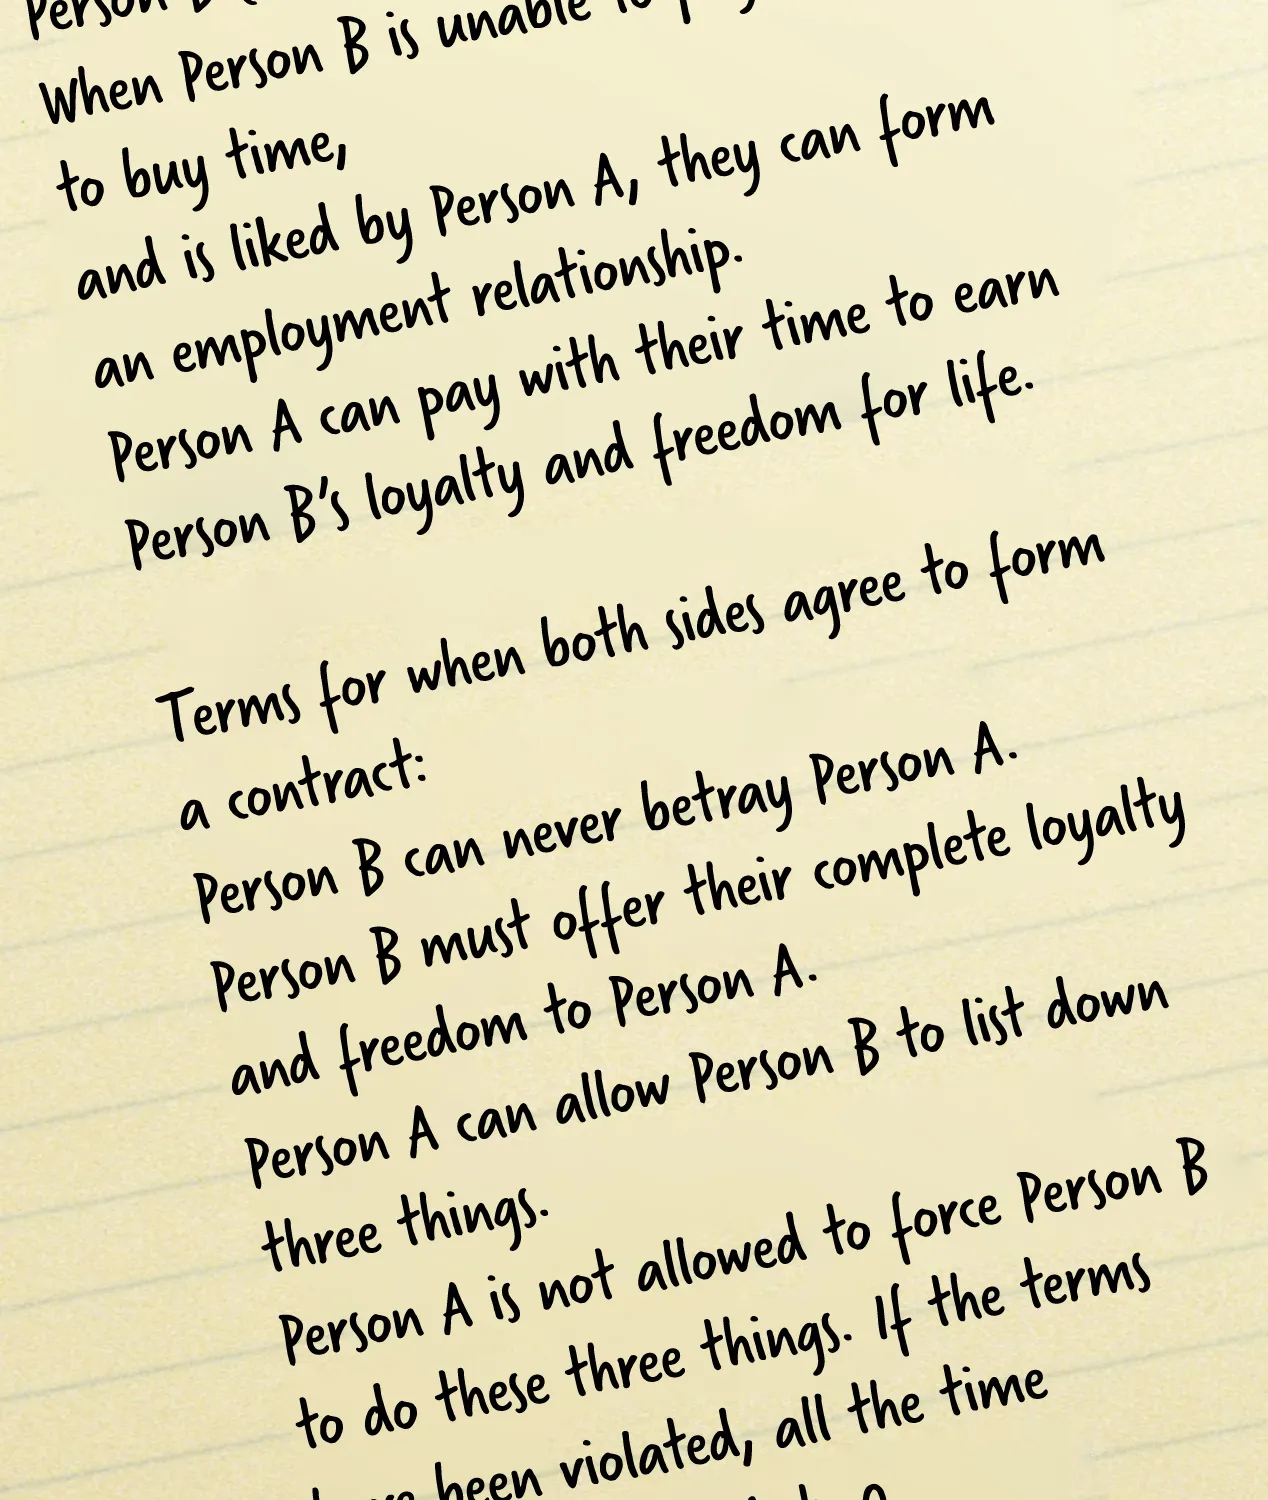 Person B
When Person B is unable to pay
to buy time,
and is liked by Person A, they can form
an employment relationship.
Person A can pay with their time to earn
Person B's loyalty and freedom for life.
Terms for when both sides agree to form
a contract:
Person B can never betray Person A.
Person B must offer their complete loyalty
and freedom to Person A.
Person A can allow Person B to list down
three things.
Person A is not allowed to force Person B
to do these three things. If the terms
been violated, all the time